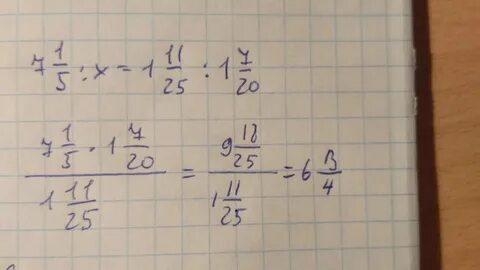 7 1/5 : x = 1 11/25 : 1 7/20
(7 1/5 · 1 7/20) / (1 11/25) = (9 18/25) / (1 11/25) = 6 3/4